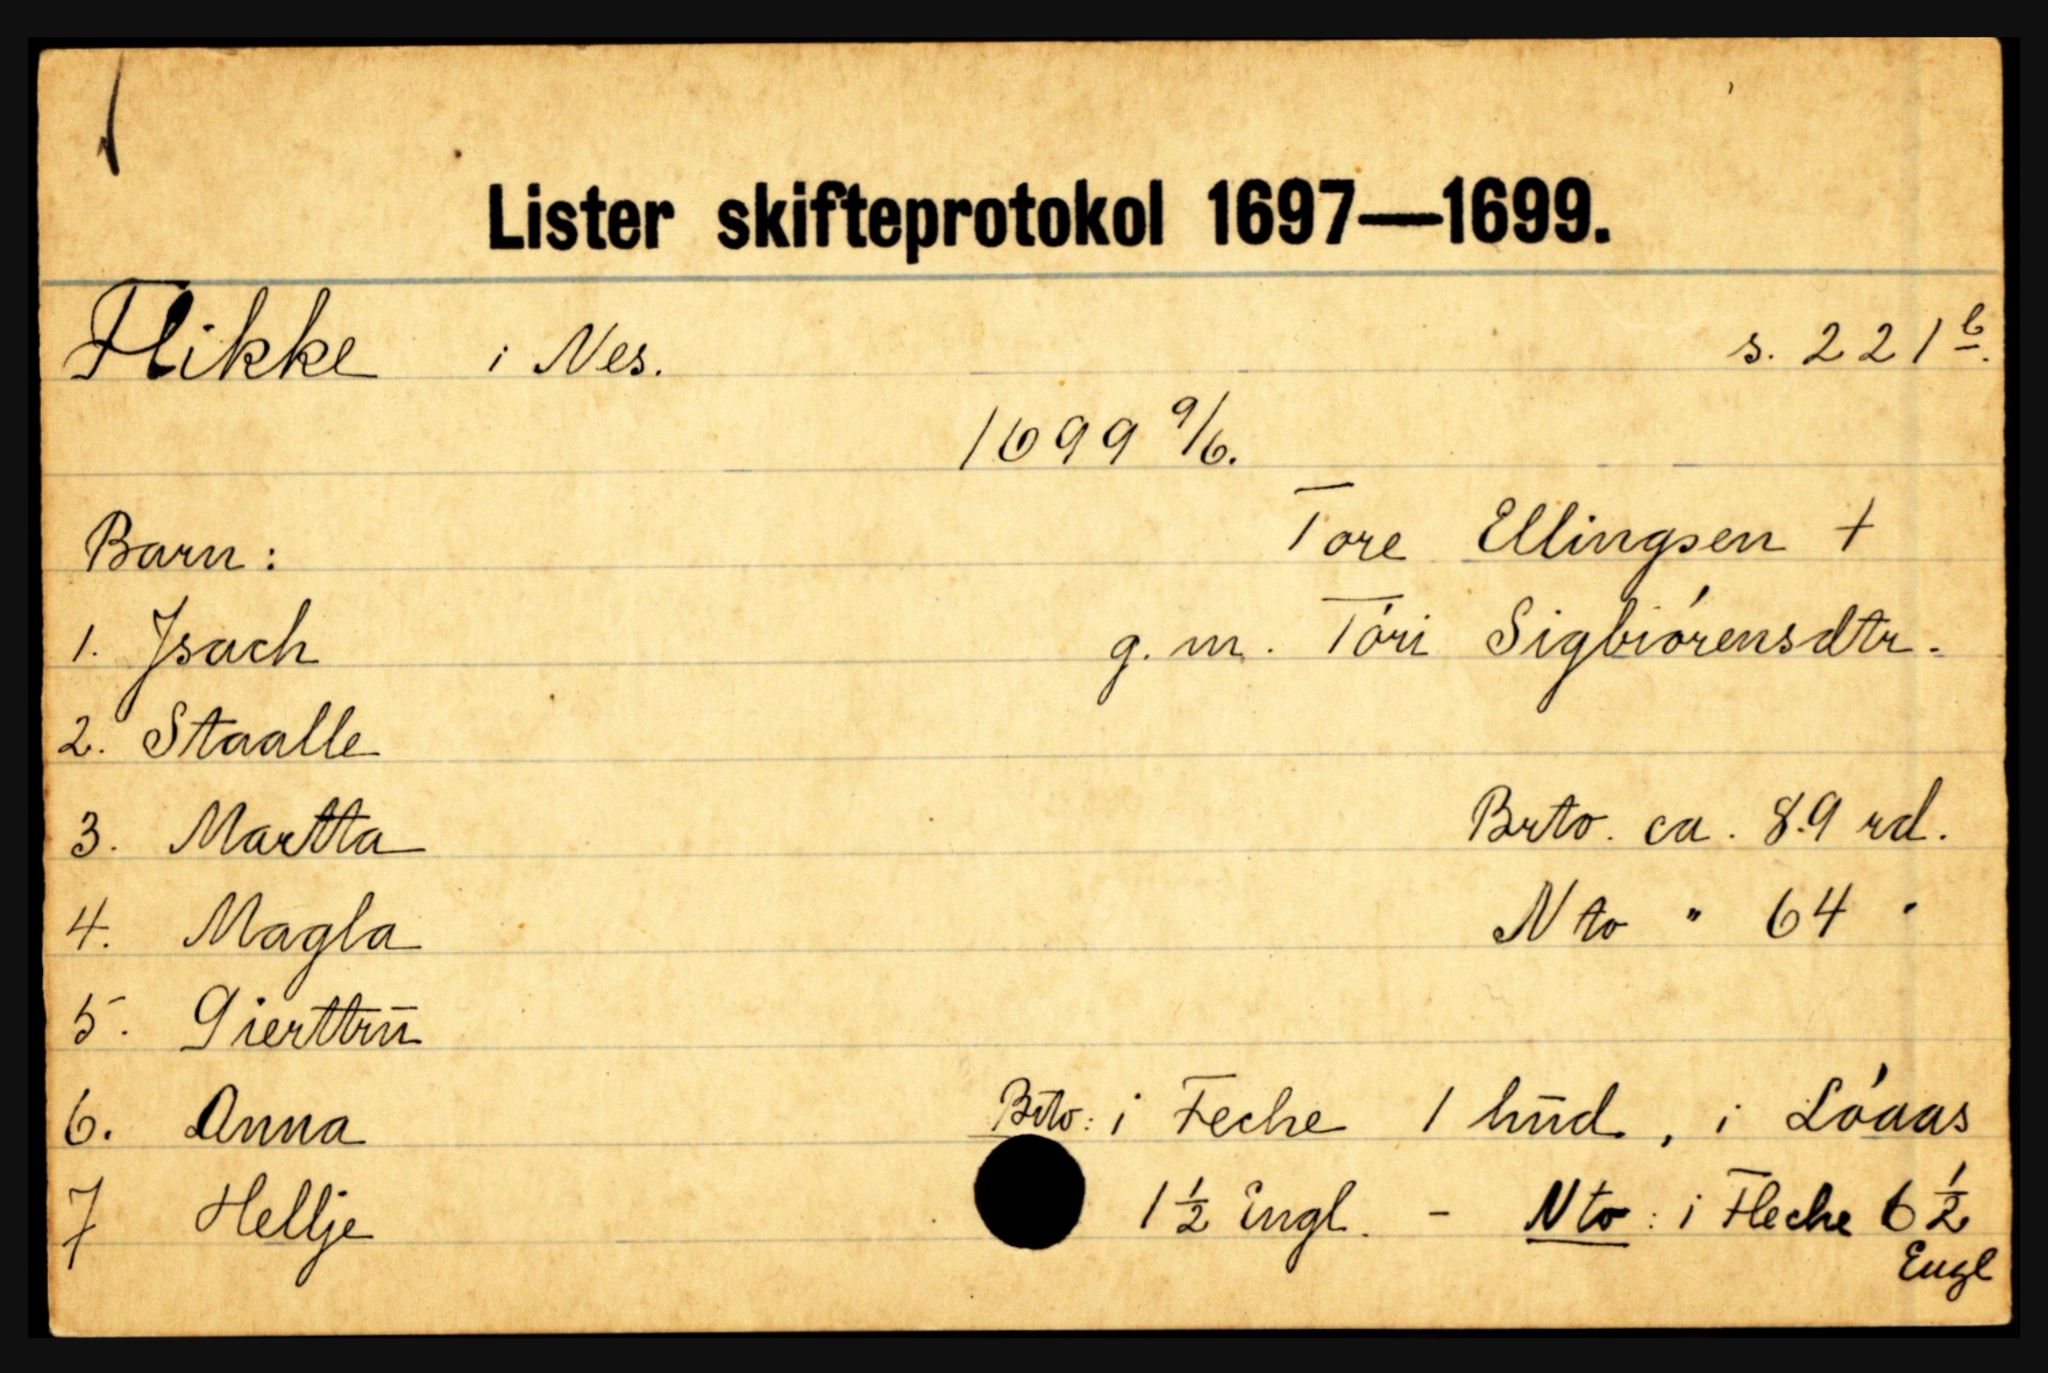 Lister skifteprotokol 1697—1699.
Flikke i Nes. s. 221 b.
1699 9/6.
Barn: Tore Ellingsen +
1. Jsach g. m. Tóri Sigbiórensdtr.
2. Staalle
3. Martta Brto. ca. 89 rd.
4. Magla Nto " 64 "
5. Gierttrū
6. Anna Brto: i Feche 1 hūd, i Lóaas
7 Hellje 1 1/2 Engl. - Nto: i Fleche 6 1/2
Engl